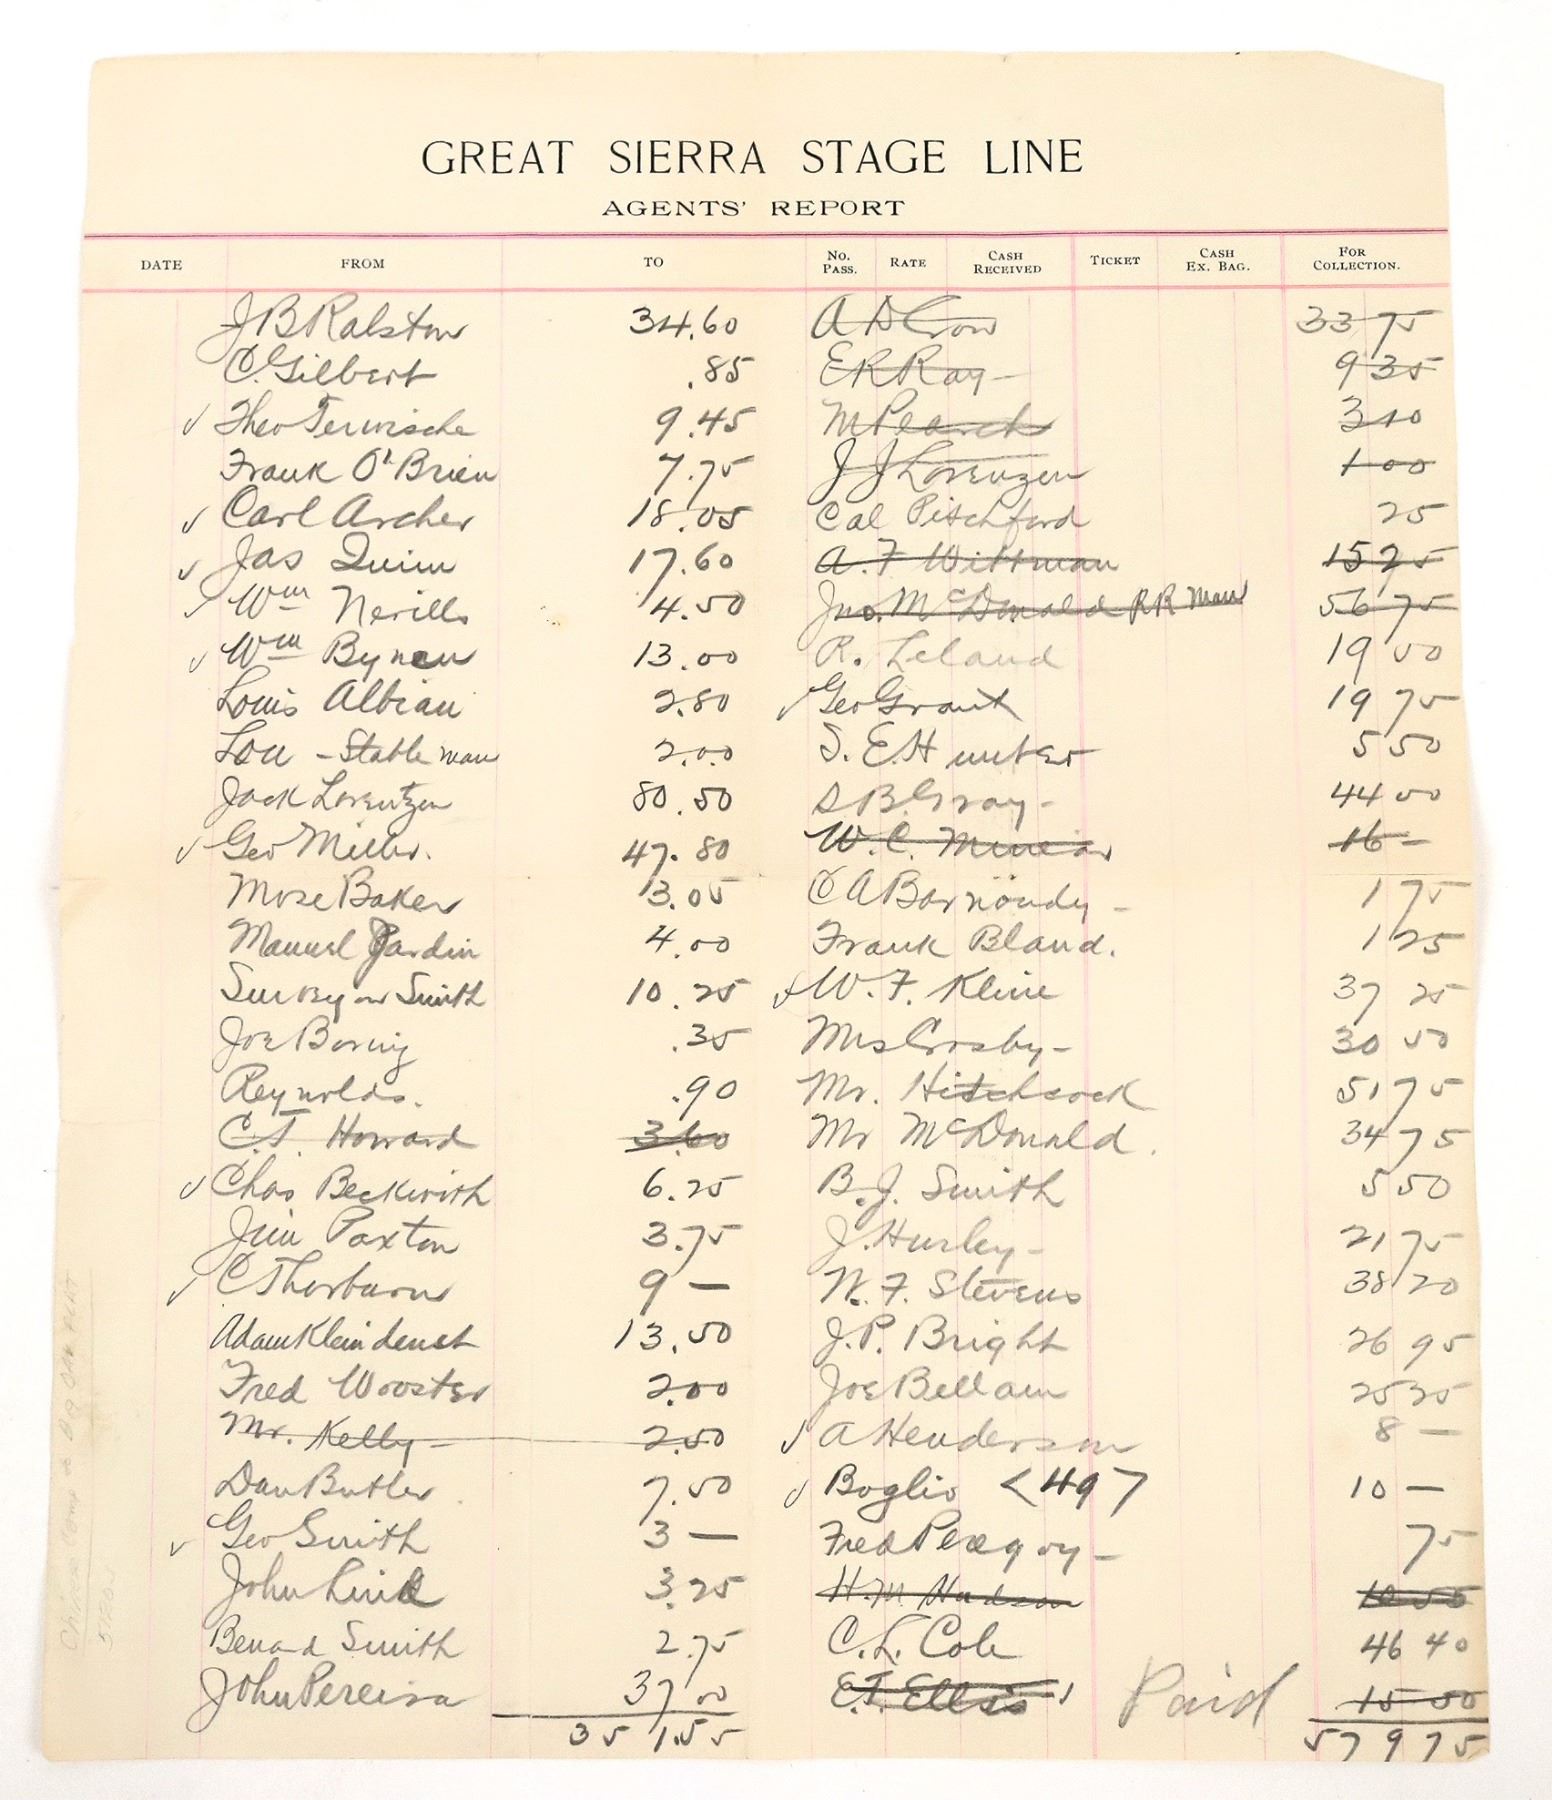 GREAT SIERRA STAGE LINE
AGENTS' REPORT
DATE FROM TO NO. PASS. RATE CASH RECEIVED TICKET CASH EX. BAG. FOR COLLECTION.
J B Ralston 34.60 A D Cron 33 75
C. Gilbert .85 E R Ray - 9 35
✓ Theo 9.45 M Pearch 3 10
Frank O'Brien 7.75 J J Lorenzen 1 00
✓ Carl Archer 18.05 Cal Pitchford 25
✓ Jas Quinn 17.60 A. F Wittman 15 25
✓ Wm Nevills 4.50 Jno. McDonald RR man 56 75
✓ Wm Bynen 13.00 R. Leland 19 00
Louis Albian 2.80 ✓ Geo Grant 19 75
Lou - Stable man 2.00 S. E Hunter 5 50
Jack Lorentzen 80.50 S B. Gray - 44 00
✓ Geo Miller. 47.80 W. C. Minear 16 -
Mose Baker 13.05 C A Barnondy - 1 75
Manuel Jardin 4.00 Frank Bland. 1 25
Surveyor Smith 10.25 ✓ W. F. Kline 37 25
Joe Boring .35 Mrs Crosby - 30 50
Reynolds. .90 Mr. Hitchcock 51 75
C. T. Howard 3.60 Mr McDonald. 34 75
✓ Chas Beckwith 6.25 B. J. Smith 5 50
Jim Paxton 3.75 J. Hurley - 21 75
✓ C Thorburn 9 - N. F. Stevens 38 20
Adam Kleindenst 13.50 J. P. Bright 26 95
Fred Wooster 2.00 Joe Bellam 25 25
Mr. Kelly - 2.50 ✓ A Henderson 8 -
Dan Butler. 7.50 ✓ Boglio <497 10 -
✓ Geo Smith 3 - Fred Peagoy - 75
John Link 3.25 H. M. Hudson 10 50
Benard Smith 2.75 C. L. Cole 46 40
John Pereira 37.00 E. T. Ellis Paid 15 50
351.55 579 75